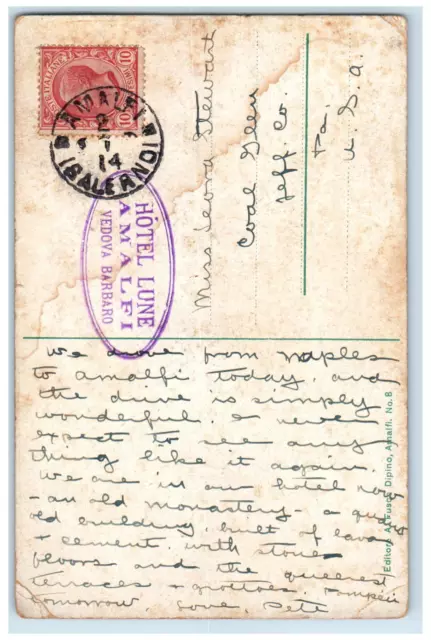 POSTE ITALIANE
10
AMALFI
2
1
14
(SALERNO)
HÔTEL LUNE
AMALFI
VEDOVA BARBARO
Miss Leora Stewart
Coal Glen
Jeff Co.
Pa.
U.S.A.
We drove from Naples
to Amalfi today, and
the drive is simply
wonderful. I never
expect to see any
thing like it again.
We are in our hotel now
- an old monastery - a queer
old building, built of lava
+ cement, with stone
floors and the queerest
terraces + grottoes. Pompeii
tomorrow. Love, Pete
Editore A. Fusco Dipino, Amalfi. No. 8